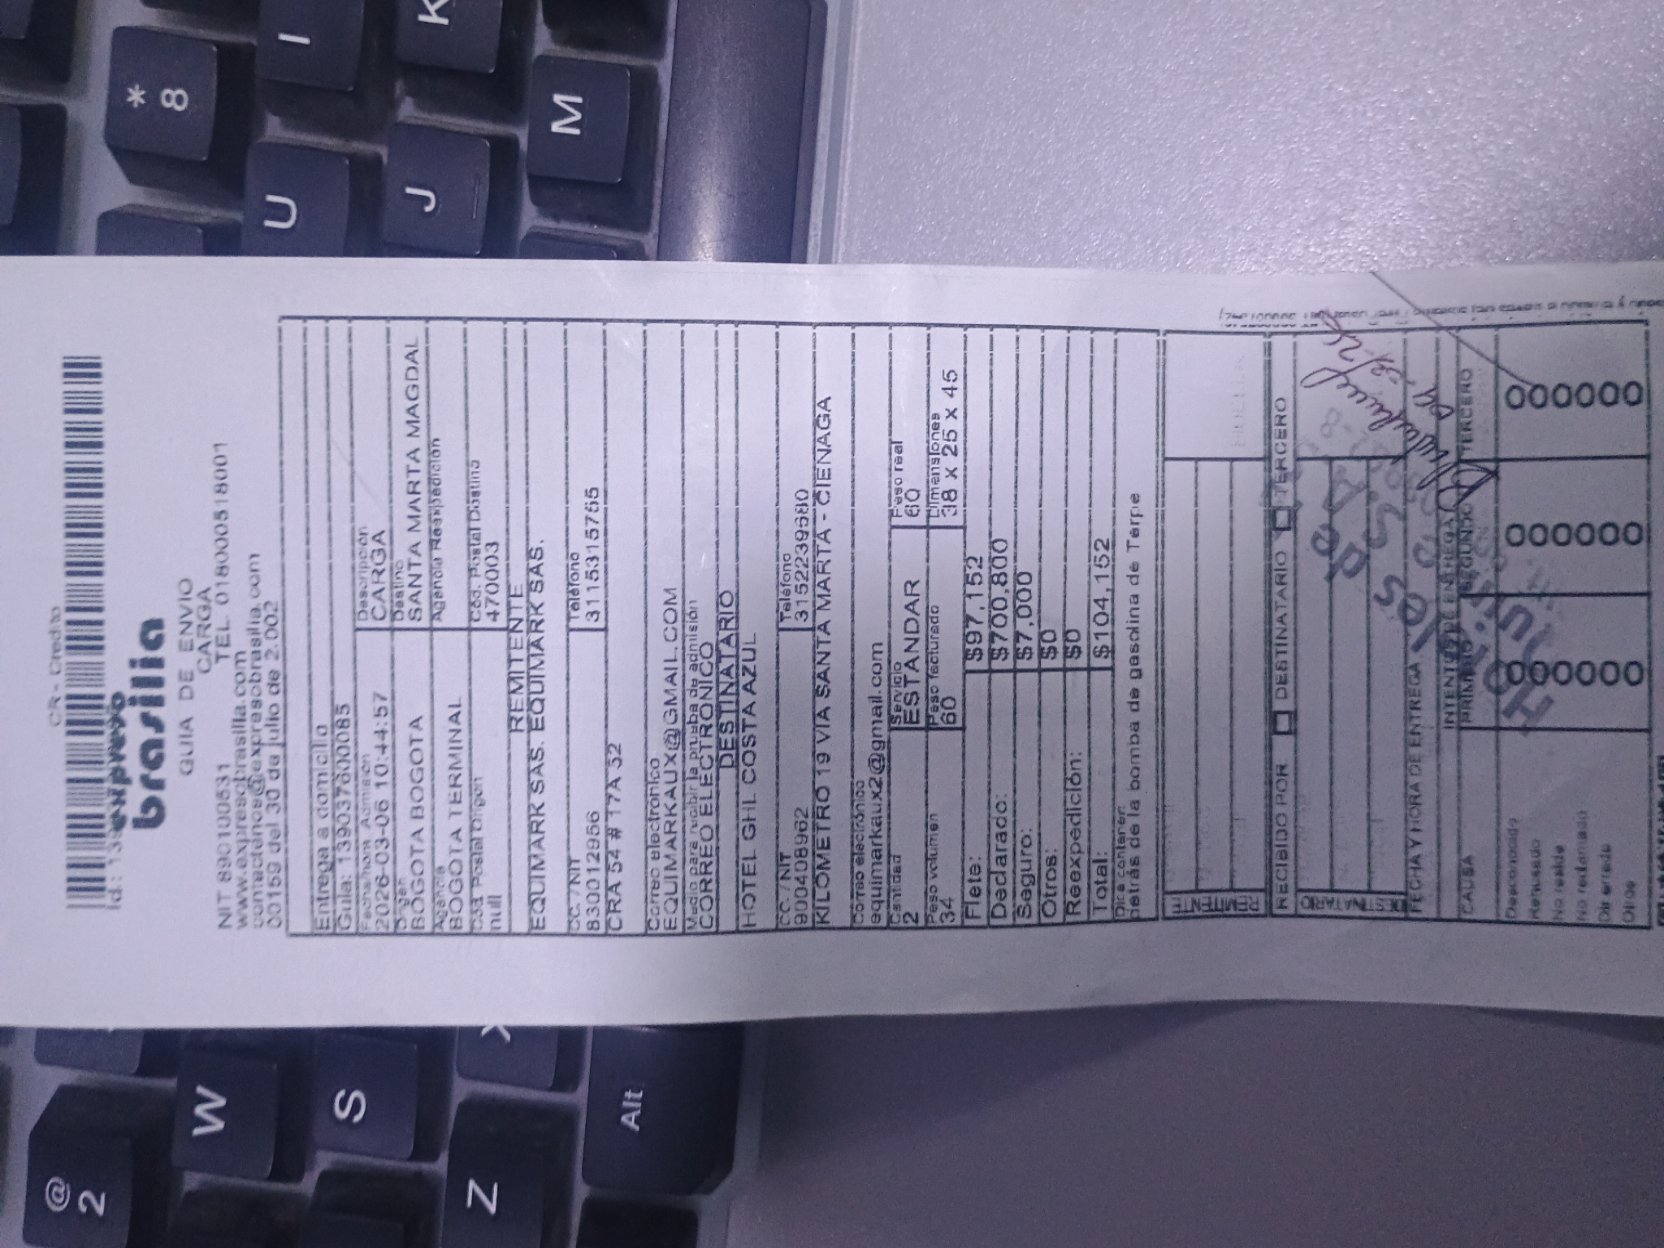 CR - Credito
expreso
brasilia
GUIA DE ENVIO
CARGA
NIT 890100531 TEL. 018000518001
www.expresobrasilia.com
contactenos@expresobrasilia.com
00159 del 30 de julio de 2.002
Entrega a domicilio
Guia: 139037600085
Fecha/hora Admisión Descripción
2026-03-06 10:44:57 CARGA
Origen Destino
BOGOTA BOGOTA SANTA MARTA MAGDAL
Agencia Agencia Reexpedición
BOGOTA TERMINAL
Cód. Postal Origen Cód. Postal Destino
null 470003
REMITENTE
EQUIMARK SAS. EQUIMARK SAS.
CC. / NIT Teléfono
830012956 3115315755
CRA 54 # 17A 32
Correo electrónico
EQUIMARKAUX@GMAIL.COM
Medio para recibir la prueba de admisión
CORREO ELECTRÓNICO
DESTINATARIO
HOTEL GHL COSTA AZUL
CC. / NIT Teléfono
900408962 3152239580
KILOMETRO 19 VIA SANTA MARTA - CIENAGA
Correo electrónico
equimarkaux2@gmail.com
Cantidad Servicio Peso real
2 ESTANDAR 60
Peso volumen Peso facturado Dimensiones
34 60 38 x 25 x 45
Flete: $97,152
Declarado: $700,800
Seguro: $7,000
Otros: $0
Reexpedición: $0
Total: $104,152
Dice contener:
Detrás de la bomba de gasolina de Terpe
REMITENTE
HUELLA
RECIBIDO POR DESTINATARIO TERCERO
DESTINATARIO
Hoteles de
S.A
FECHA Y HORA DE ENTREGA
INTENTO DE ENTREGA
CAUSA PRIMERO SEGUNDO TERCERO
Desconocido
Rehusado
No reside
No reclamado
Dir errada
Otros
000000 000000 000000